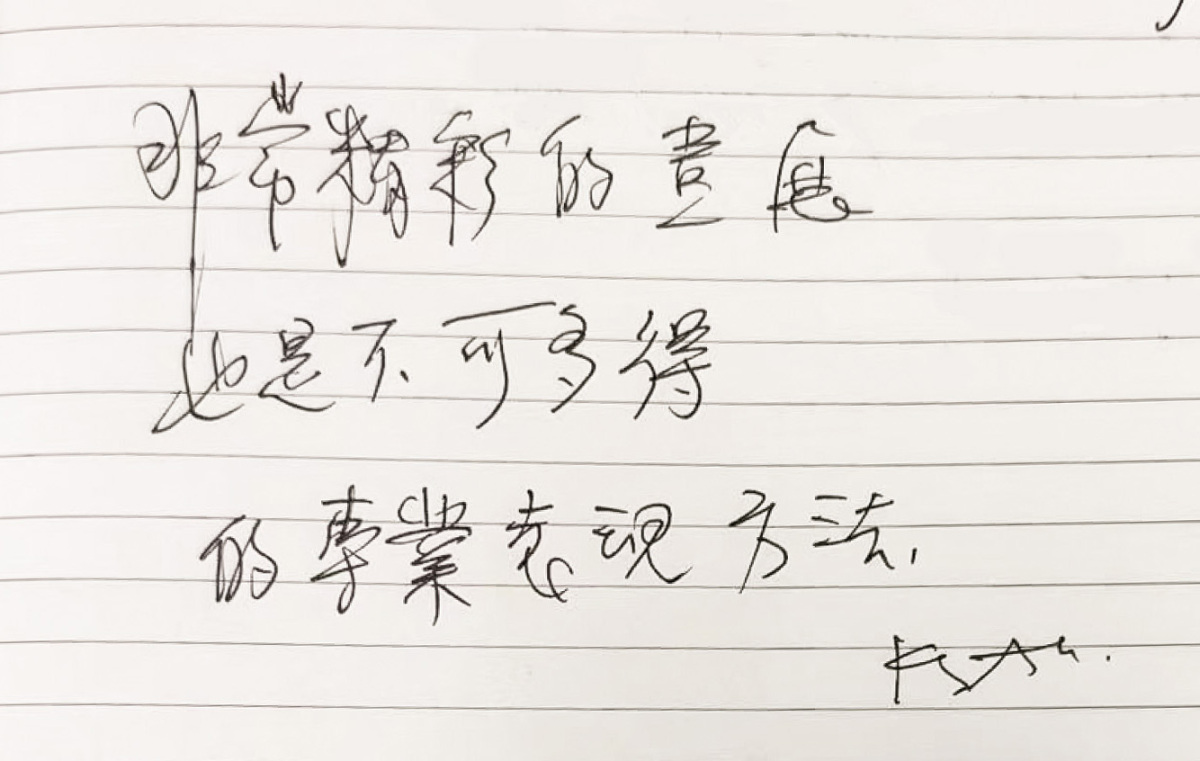 非常精彩的畫展
也是不可多得
的專業表現方法.